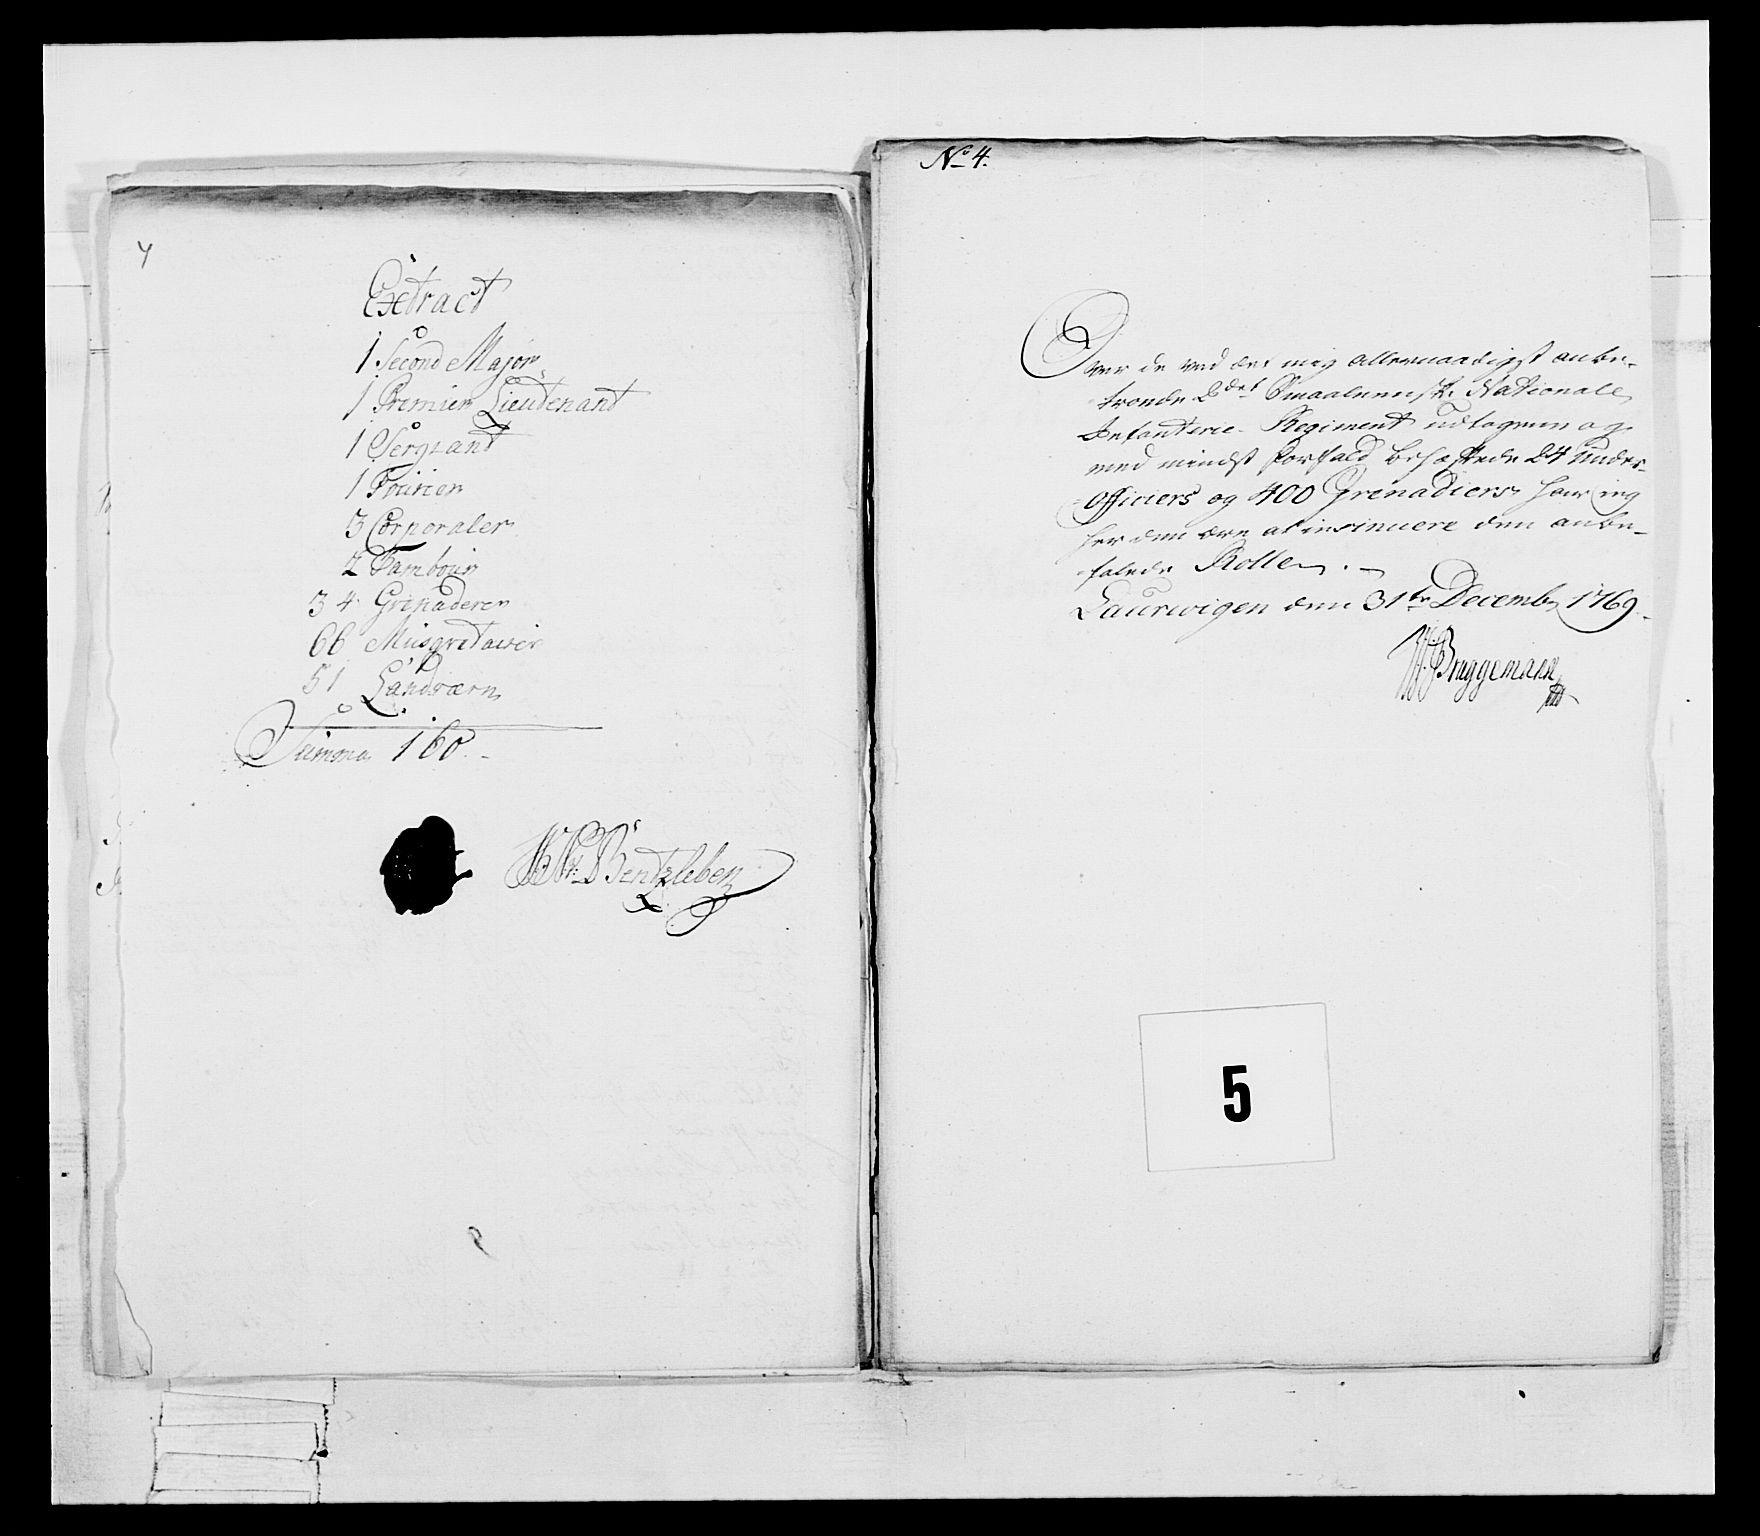 4
Extract
1 Second Major
1 Premier Lieutenant
1 Sergiant
1 Fourier
3 Corporaler
2 Tambour
34 Grenaderer
66 Musqvetairer
51 Landværn
Summa 160.
Bentzleben
No 4.
Over de ved det mig allernaadigst anbe-
troede 2det Smaalenske Nationale
Infanterie Regiment udtagne og
med mindst Forfald behæftede 24 Under
Officiers og 400 Grenadiers har ieg
her den ære at insinuere den anbe-
falede Rolle.
Laurwigen den 31te Decembr 1769.
Bruggemann
5